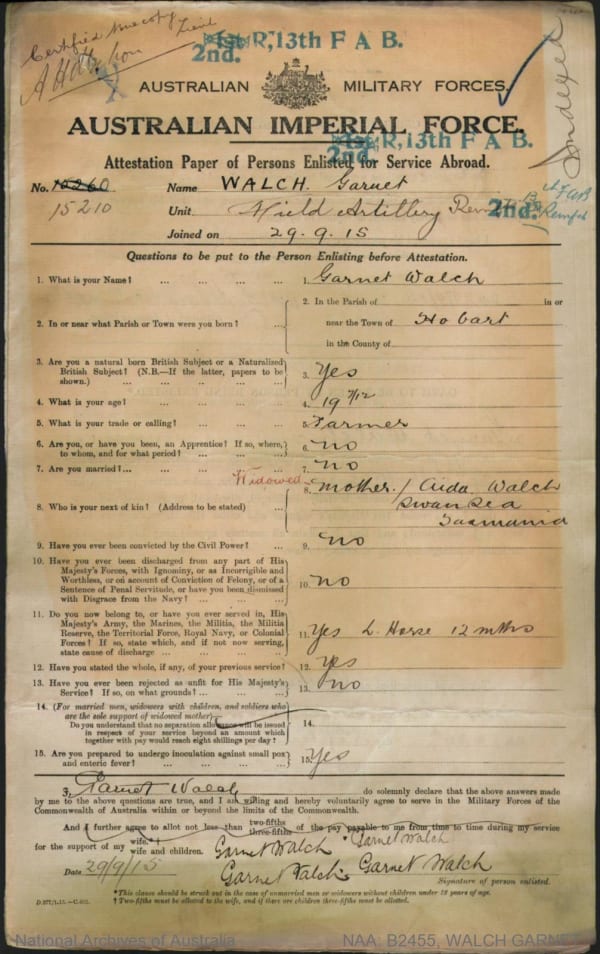 Certified true copy
Lieut
1st R, 13th F A B.
2nd.
AUSTRALIAN MILITARY FORCES.
AUSTRALIAN IMPERIAL FORCE.
1st R, 13th F A B.
2nd.
Attestation Paper of Persons Enlisted for Service Abroad.
Indexed
No. 10260 Name WALCH. Garnet
15210 Unit Field Artillery 2nd.
Joined on 29.9.15
Questions to be put to the Person Enlisting before Attestation.
1. What is your Name? ... 1. Garnet Walch
2. In or near what Parish or Town were you born? ... 2. In the Parish of in or
near the Town of Hobart
in the County of
3. Are you a natural born British Subject or a Naturalized
British Subject? (N.B.—If the latter, papers to be
shown.) ... 3. Yes
4. What is your age? ... 4. 19 7/12
5. What is your trade or calling? ... 5. Farmer
6. Are you, or have you been, an Apprentice? If so, where,
to whom, and for what period? ... 6. no
7. Are you married? ... 7. no
Widowed
8. Who is your next of kin? (Address to be stated) ... 8. mother / Aida Walch
Swansea
Tasmania
9. Have you ever been convicted by the Civil Power? ... 9. no
10. Have you ever been discharged from any part of His
Majesty's Forces, with Ignominy, or as Incorrigible and
Worthless, or on account of Conviction of Felony, or of a
Sentence of Penal Servitude, or have you been dismissed
with Disgrace from the Navy? ... 10. no
11. Do you now belong to, or have you ever served in, His
Majesty's Army, the Marines, the Militia, the Militia
Reserve, the Territorial Force, Royal Navy, or Colonial
Forces? If so, state which, and if not now serving,
state cause of discharge ... 11. Yes L. Horse 12 mths
12. Have you stated the whole, if any, of your previous service? 12. Yes
13. Have you ever been rejected as unfit for His Majesty's
Service? If so, on what grounds? ... 13. no
14. (For married men, widowers with children, and soldiers who
are the sole support of widowed mother)
Do you understand that no separation allowance will be issued
in respect of your service beyond an amount which
together with pay would reach eight shillings per day? ... 14.
15. Are you prepared to undergo inoculation against small pox
and enteric fever? ... 15. Yes
I, Garnet Walch do solemnly declare that the above answers made
by me to the above questions are true, and I am willing and hereby voluntarily agree to serve in the Military Forces of the
Commonwealth of Australia within or beyond the limits of the Commonwealth.
And I further agree to allot not less than two-fifths three-fifths of the pay payable to me from time to time during my service
for the support of my wife.*†
wife and children.
Garnet Walch Garnet Walch
Date 29/9/15 Garnet Walch Garnet Walch
Signature of person enlisted.
* This clause should be struck out in the case of unmarried men or widowers without children under 18 years of age.
† Two-fifths must be allotted to the wife, and if there are children three-fifths must be allotted.
National Archives of Australia NAA: B2455, WALCH GARNET